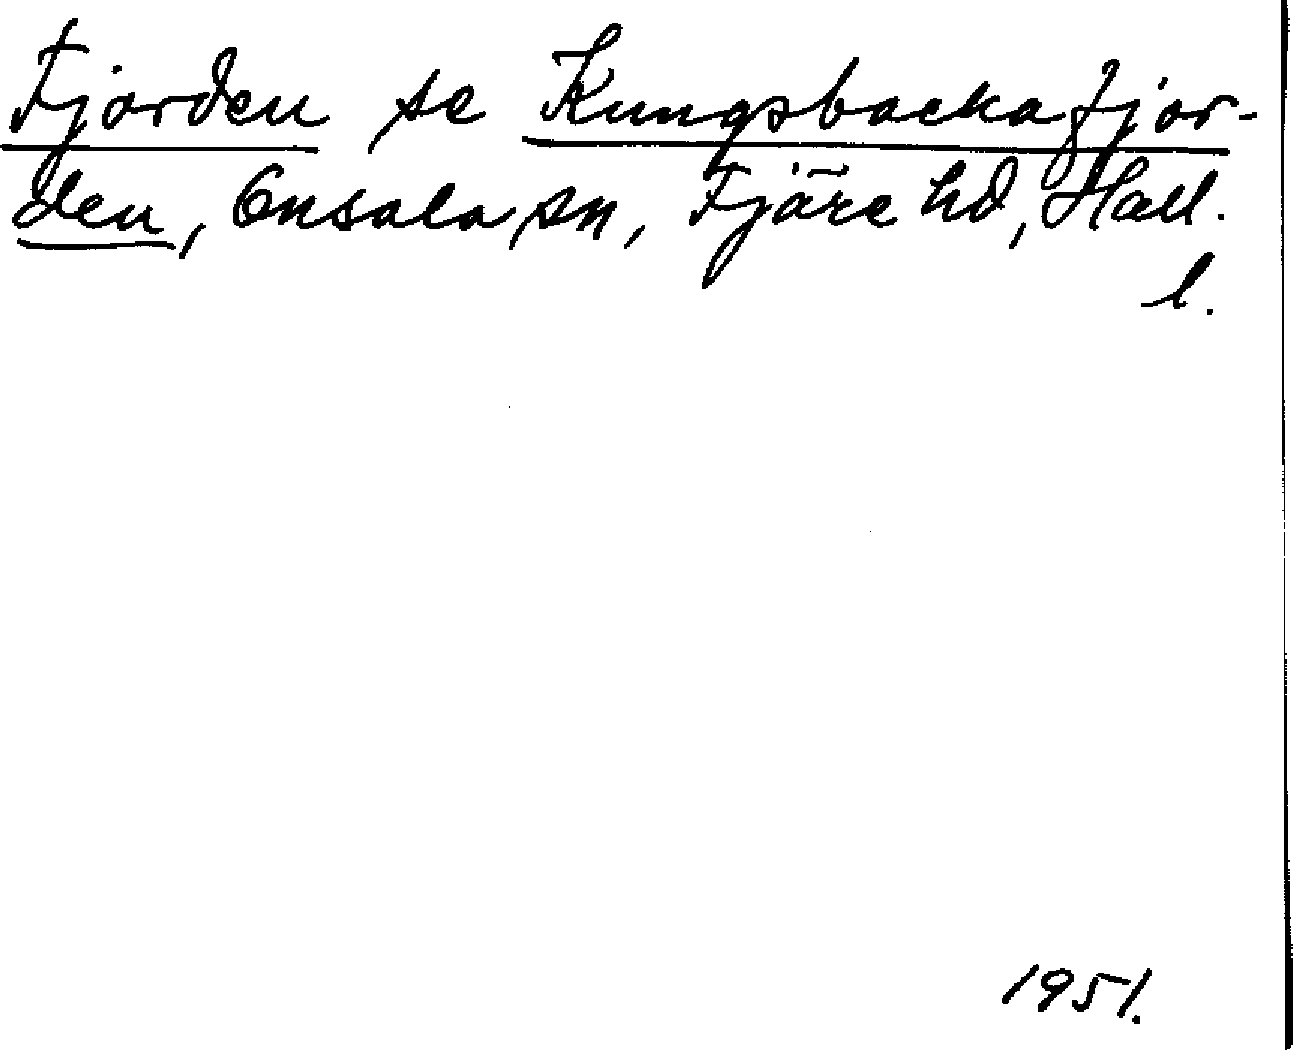 Fjorden se Kungsbackafjor-
den, Onsala sn, Fjäre hd, Hall.
l.
1951.